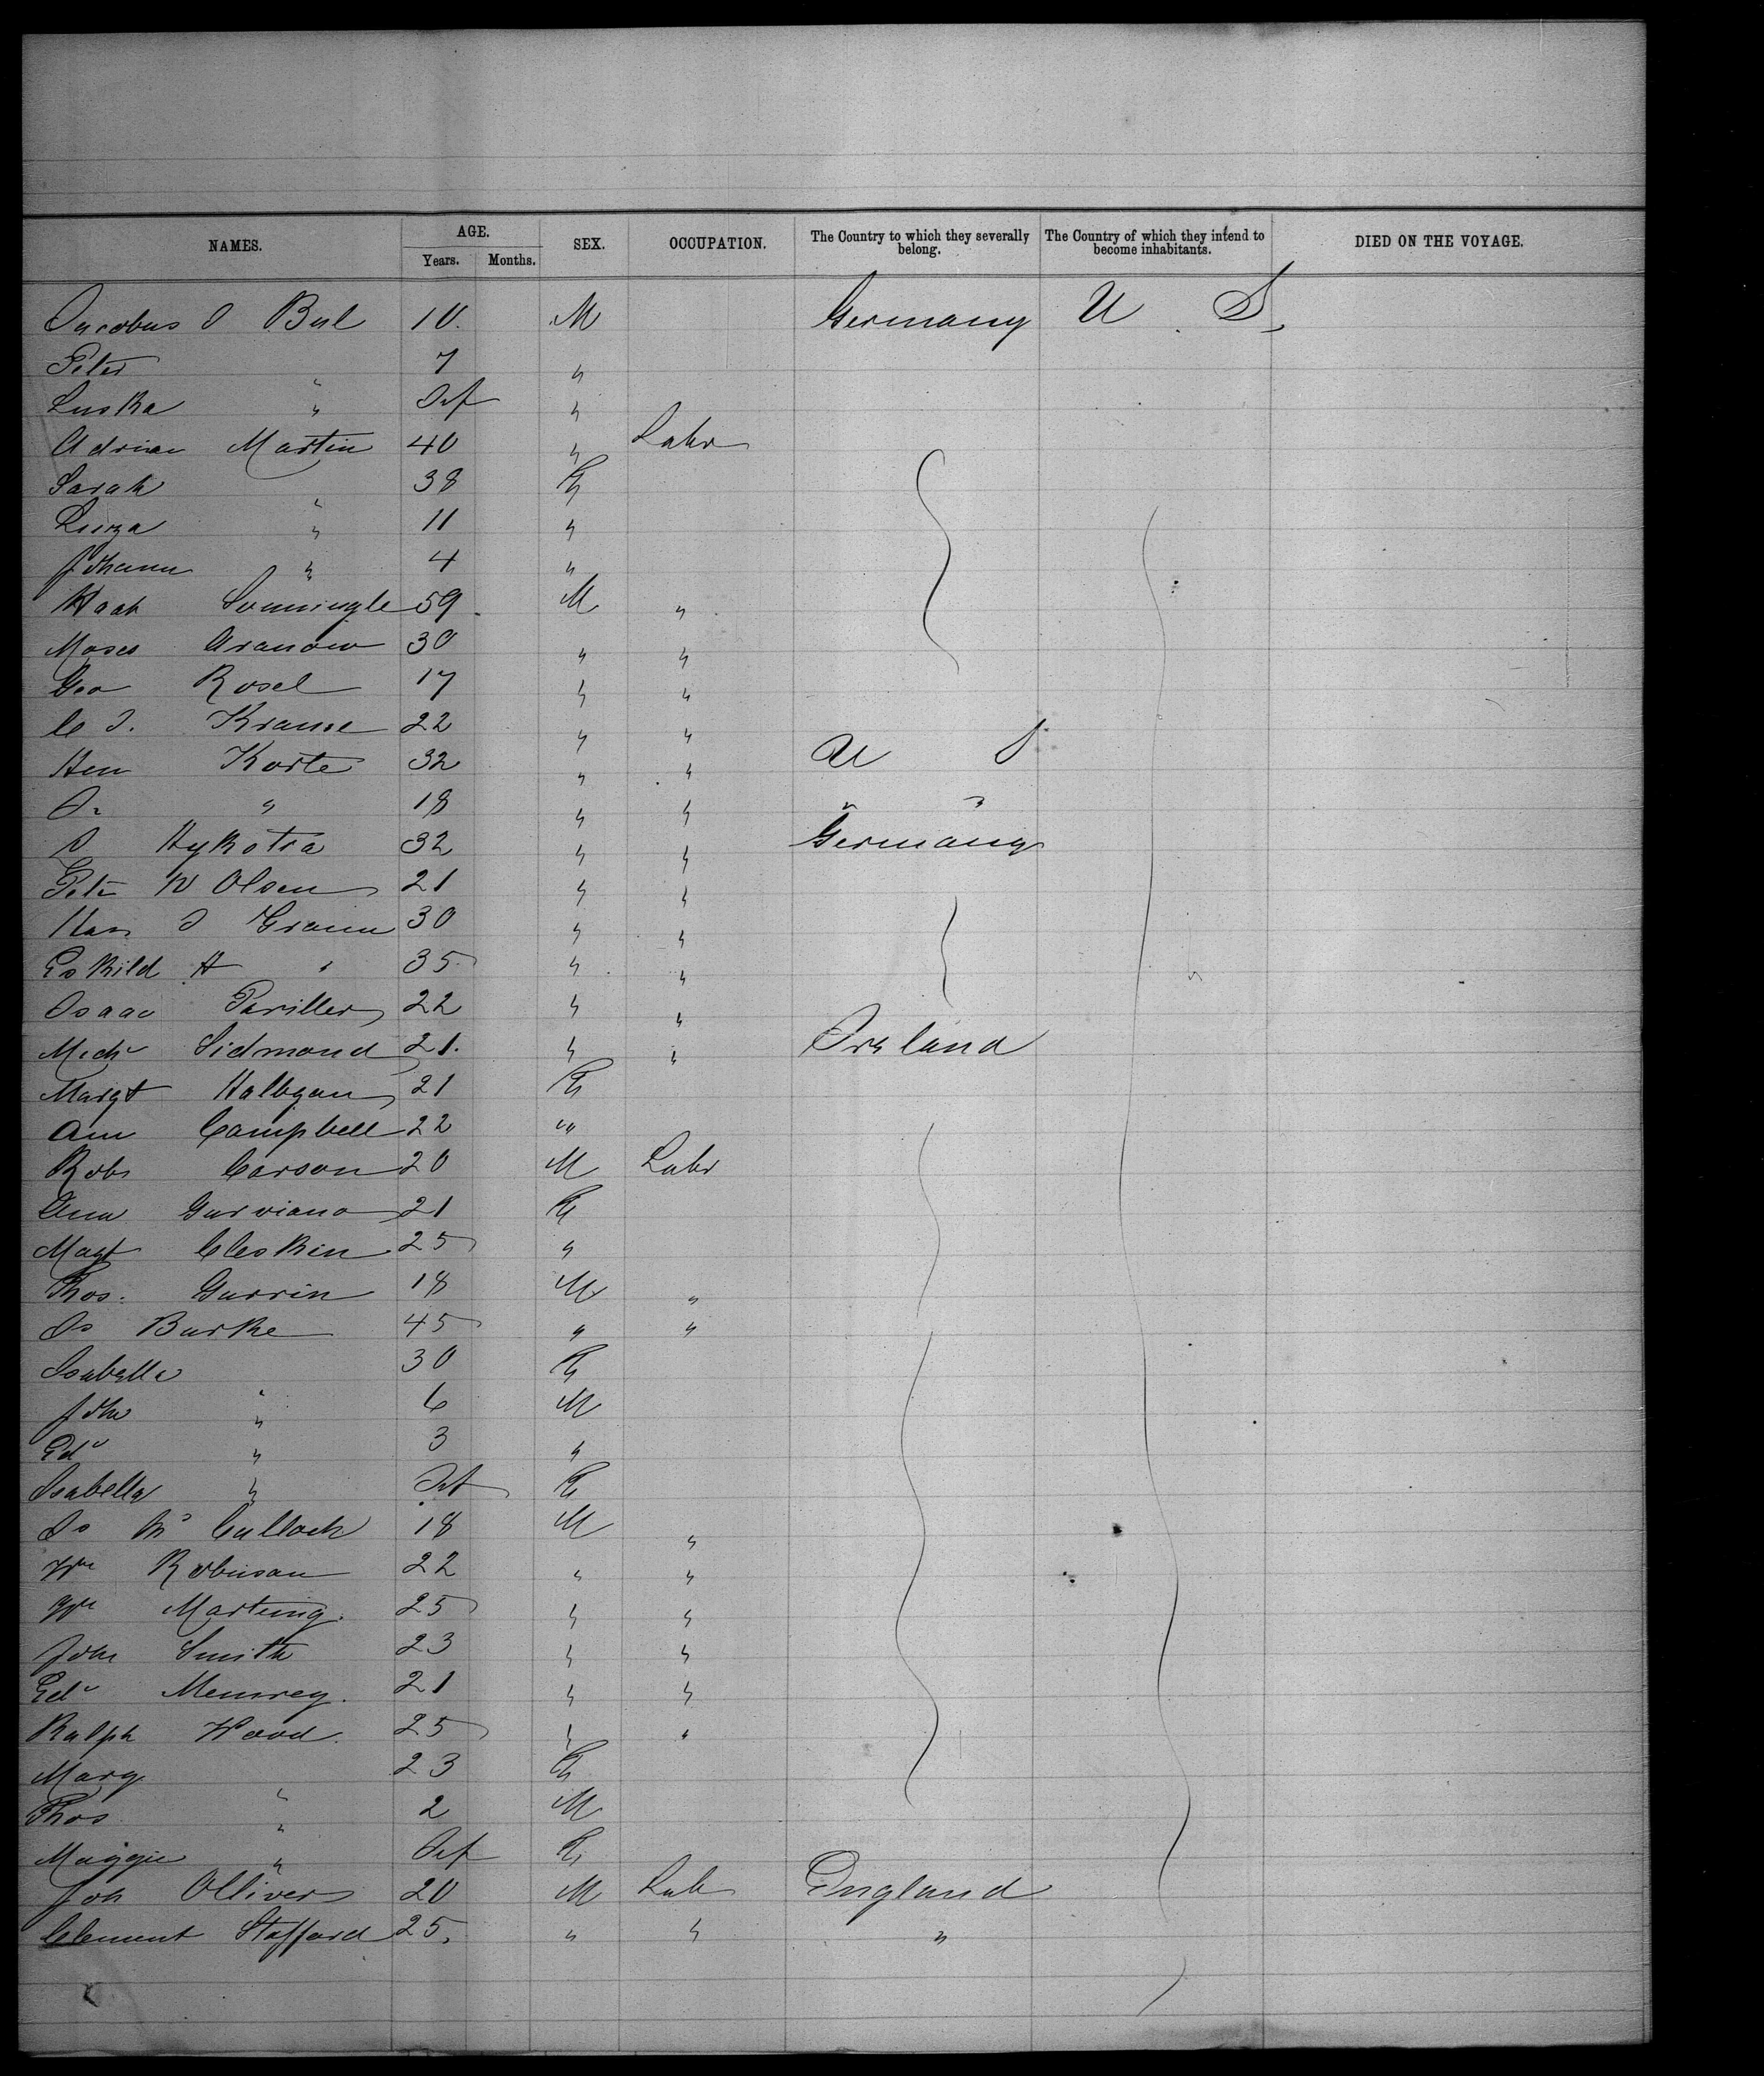 NAMES. AGE. SEX. OCCUPATION. The Country to which they severally belong. The Country of which they intend to become inhabitants. DIED ON THE VOYAGE.
Years. Months.
Jacobus J Bul 10. M Germany U. S.
Peter " 7 "
" Inf "
Adrian Martin 40 " Labr
Sarah " 38 F
" 11 "
Johann " 4 "
59. M "
Moses Aranow 30 " "
Geo Rosel 17 " "
C J. Krause 22 " "
Hen Korte 32 " " U S
" 18 " " " "
Hykotra 32 " " Germany
Peter N Olsen 21 " "
Han J Gramm 30 " "
Eskild H " 35 " "
Isaac Pariller 22 " "
Michl Sidmond 21. " " Ireland
Margt 21 F
Ann Campbell 22 "
Robt Carson 20 M Labr
Ann 21 F
Magt Cleskin 25 "
Thos. Gurrin 18 M "
Js Burke 45 " "
Isabella " 30 F
Jhn " 6 M
Edd " 3 "
Isabella " Inf F
Js Mc Culloch 18 M "
Wm Robinson 22 " "
Wm 25 " "
John Smith 23 " "
Edd 21 " "
Ralph Wood. 25 " "
Mary " 23 F
Thos " 2 M
Maggie " Inf F
Joh Olliver 20 M Lab England
Clement Stafford 25. " " "